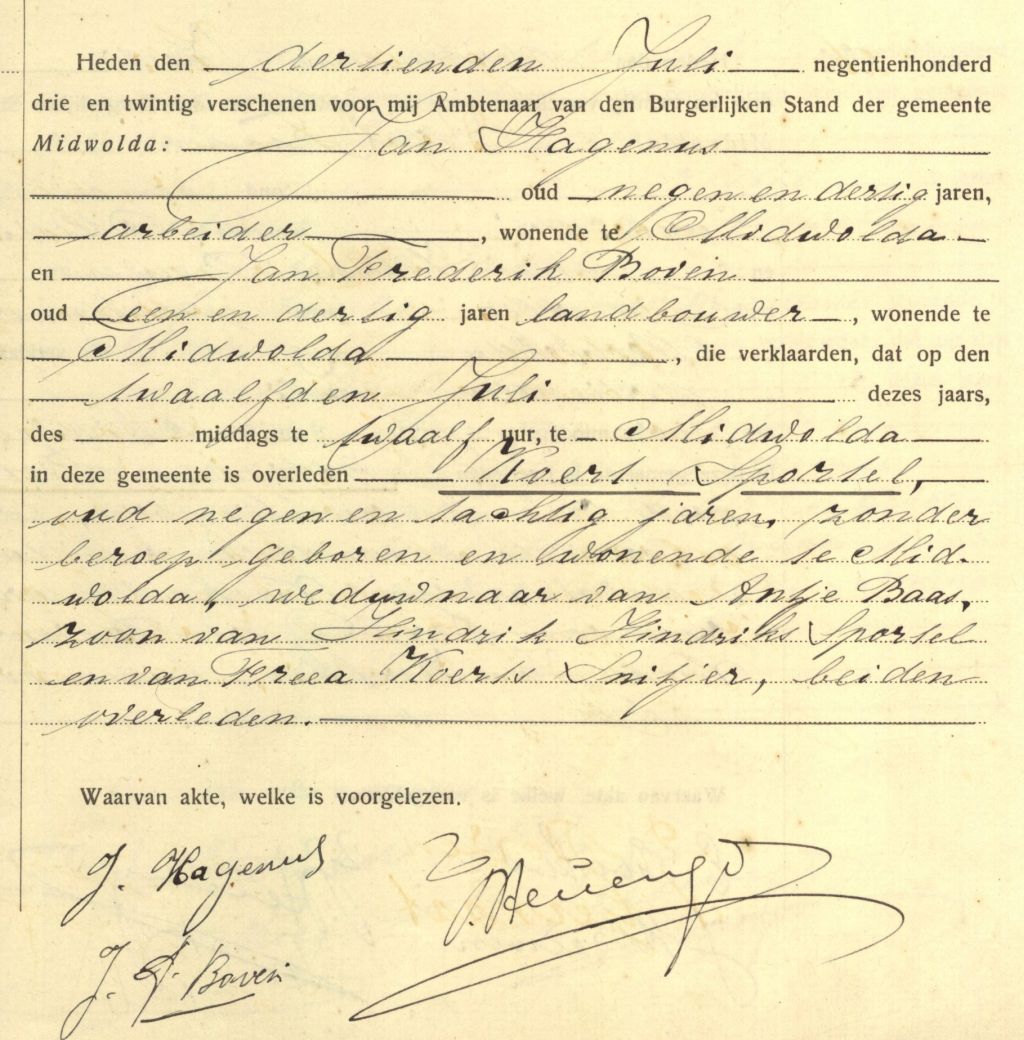 Heden den dertienden Juli negentienhonderd
drie en twintig verschenen voor mij Ambtenaar van den Burgerlijken Stand der gemeente
Midwolda: Jan Hagenus
oud negen en dertig jaren,
arbeider, wonende te Midwolda
en Jan Frederik Boven
oud een en dertig jaren landbouwer, wonende te
Midwolda, die verklaarden, dat op den
twaalfden Juli dezes jaars,
des middags te twaalf uur, te Midwolda
in deze gemeente is overleden Koert Sportel,
oud negen en tachtig jaren, zonder
beroep geboren en wonende te Mid-
wolda, weduwnaar van Antje Baas,
zoon van Hindrik Hindriks Sportel
en van Freea Koerts Snitjer, beiden
overleden.
Waarvan akte, welke is voorgelezen.
J. Hagenus
J. F. Boven